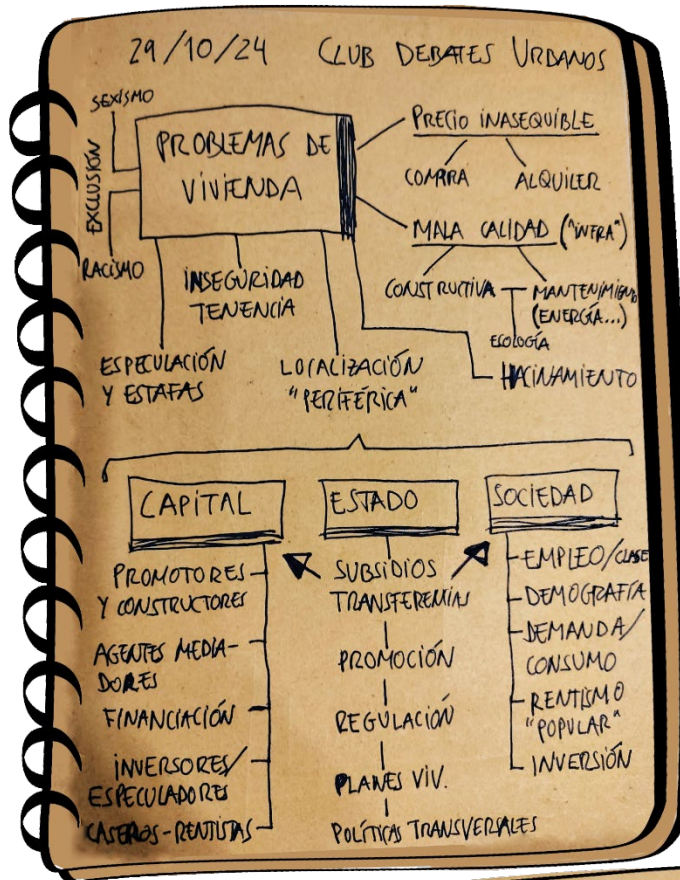 29/10/24 CLUB DEBATES URBANOS
SEXISMO
EXCLUSIÓN
RACISMO
PROBLEMAS DE
VIVIENDA
PRECIO INASEQUIBLE
COMPRA ALQUILER
MALA CALIDAD ("INFRA")
CONSTRUCTIVA MANTENIMIENTO
(ENERGÍA...)
ECOLOGÍA
HACINAMIENTO
INSEGURIDAD
TENENCIA
ESPECULACIÓN
Y ESTAFAS
LOCALIZACIÓN
"PERIFÉRICA"
CAPITAL
PROMOTORES
Y CONSTRUCTORES
AGENTES MEDIA-
DORES
FINANCIACIÓN
INVERSORES/
ESPECULADORES
CASEROS-RENTISTAS
ESTADO
SUBSIDIOS
TRANSFERENCIAS
PROMOCIÓN
REGULACIÓN
PLANES VIV.
POLÍTICAS TRANSVERSALES
SOCIEDAD
EMPLEO/CLASE
DEMOGRAFÍA
DEMANDA/
CONSUMO
RENTISMO
"POPULAR"
INVERSIÓN